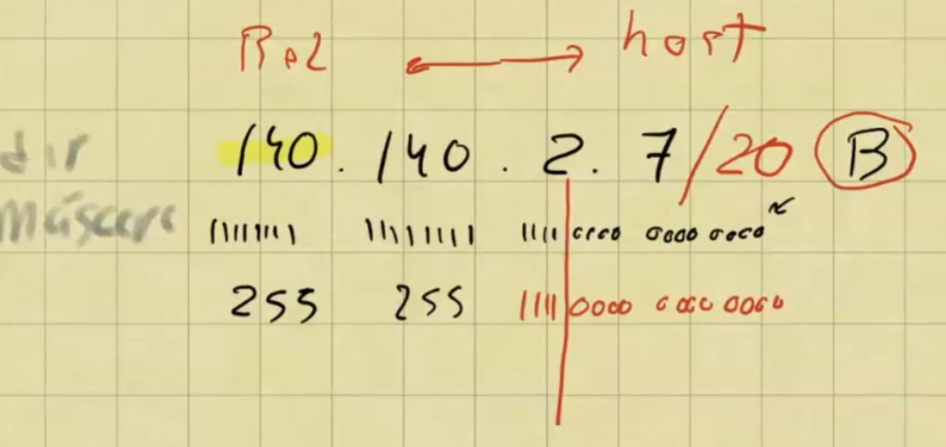 Red ⟷ host
dir 140.140.2.7/20 B
máscara 11111111 11111111 1111|0000 0000 0000
255 255 1111|0000 0000 0000